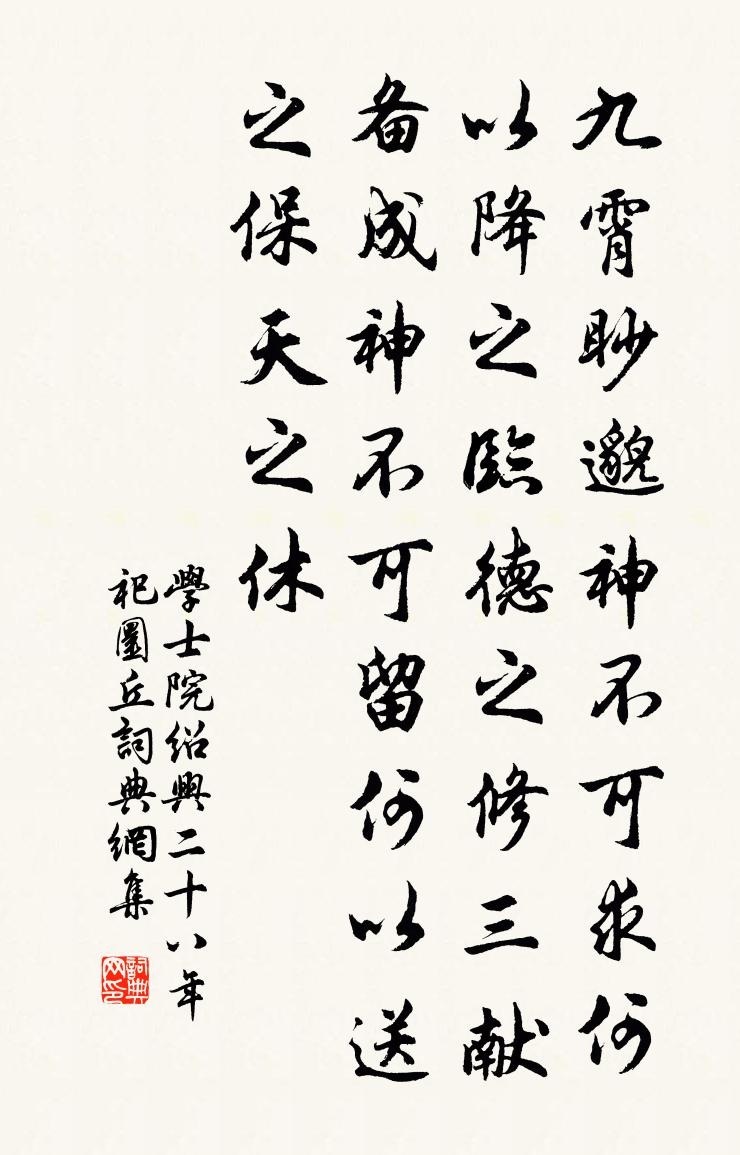 九霄眇邈神不可求何
以降之臨德之修三献
备成神不可留何以送
之保天之休
學士院紹興二十八年
祀圜丘詞典網集
詞典网印